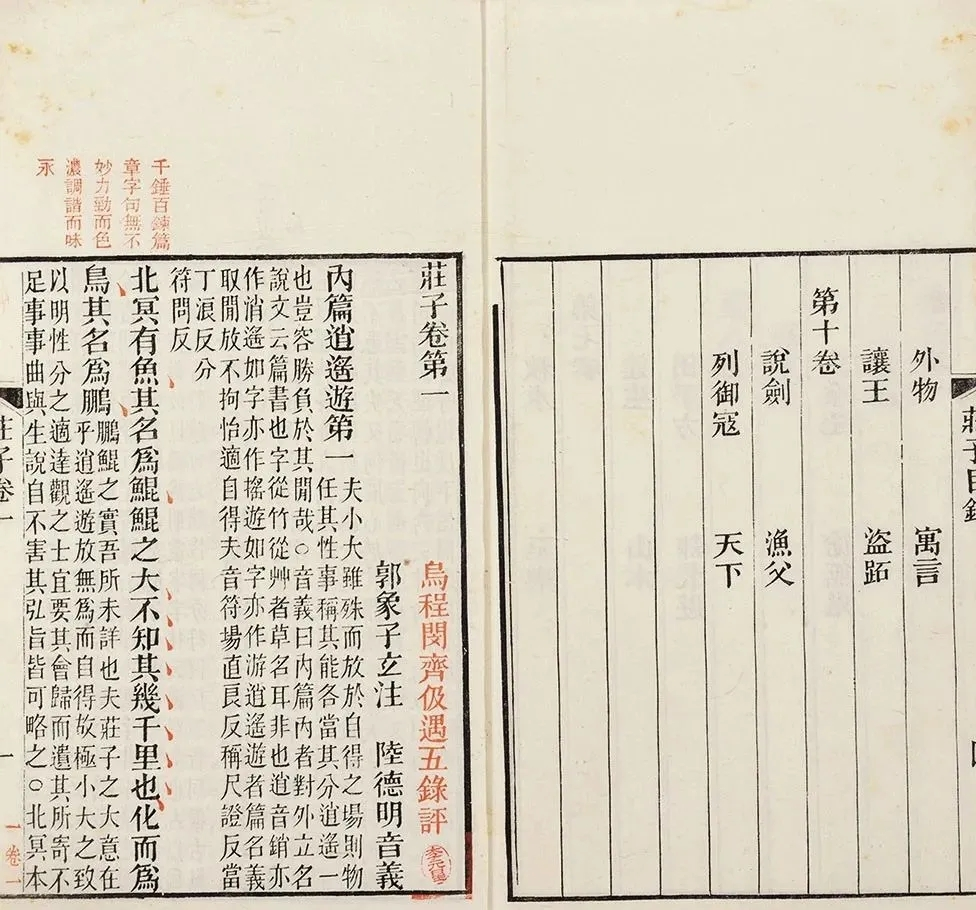 莊子目錄
外物　寓言
讓王　盜跖
第十卷
說劍　漁父
列御寇　天下
千錘百鍊篇
章字句無不
妙力勁而色
濃調諧而味
永
莊子卷第一
烏程閔齊伋遇五錄評
郭象子玄注　陸德明音義
內篇逍遙遊第一　夫小大雖殊而放於自得之場則物
任其性事稱其能各當其分逍遙一
也豈容勝負於其閒哉○音義曰內篇內者對外立名
說文云篇書也字從竹從艸者草名耳非也逍音銷亦
作消遙如字亦作搖遊如字亦作游逍遙遊者篇名義
取閒放不拘怡適自得夫音符場直良反稱尺證反當
丁浪反分
符問反
北冥有魚其名爲鯤鯤之大不知其幾千里也化而爲
鳥其名爲鵬　鵬鯤之實吾所未詳也夫莊子之大意在
乎逍遙遊放無爲而自得故極小大之致
以明性分之適達觀之士宜要其會歸而遺其所寄不
足事事曲與生說自不害其弘旨皆可略之○北冥本
莊子卷一　一
一卷一